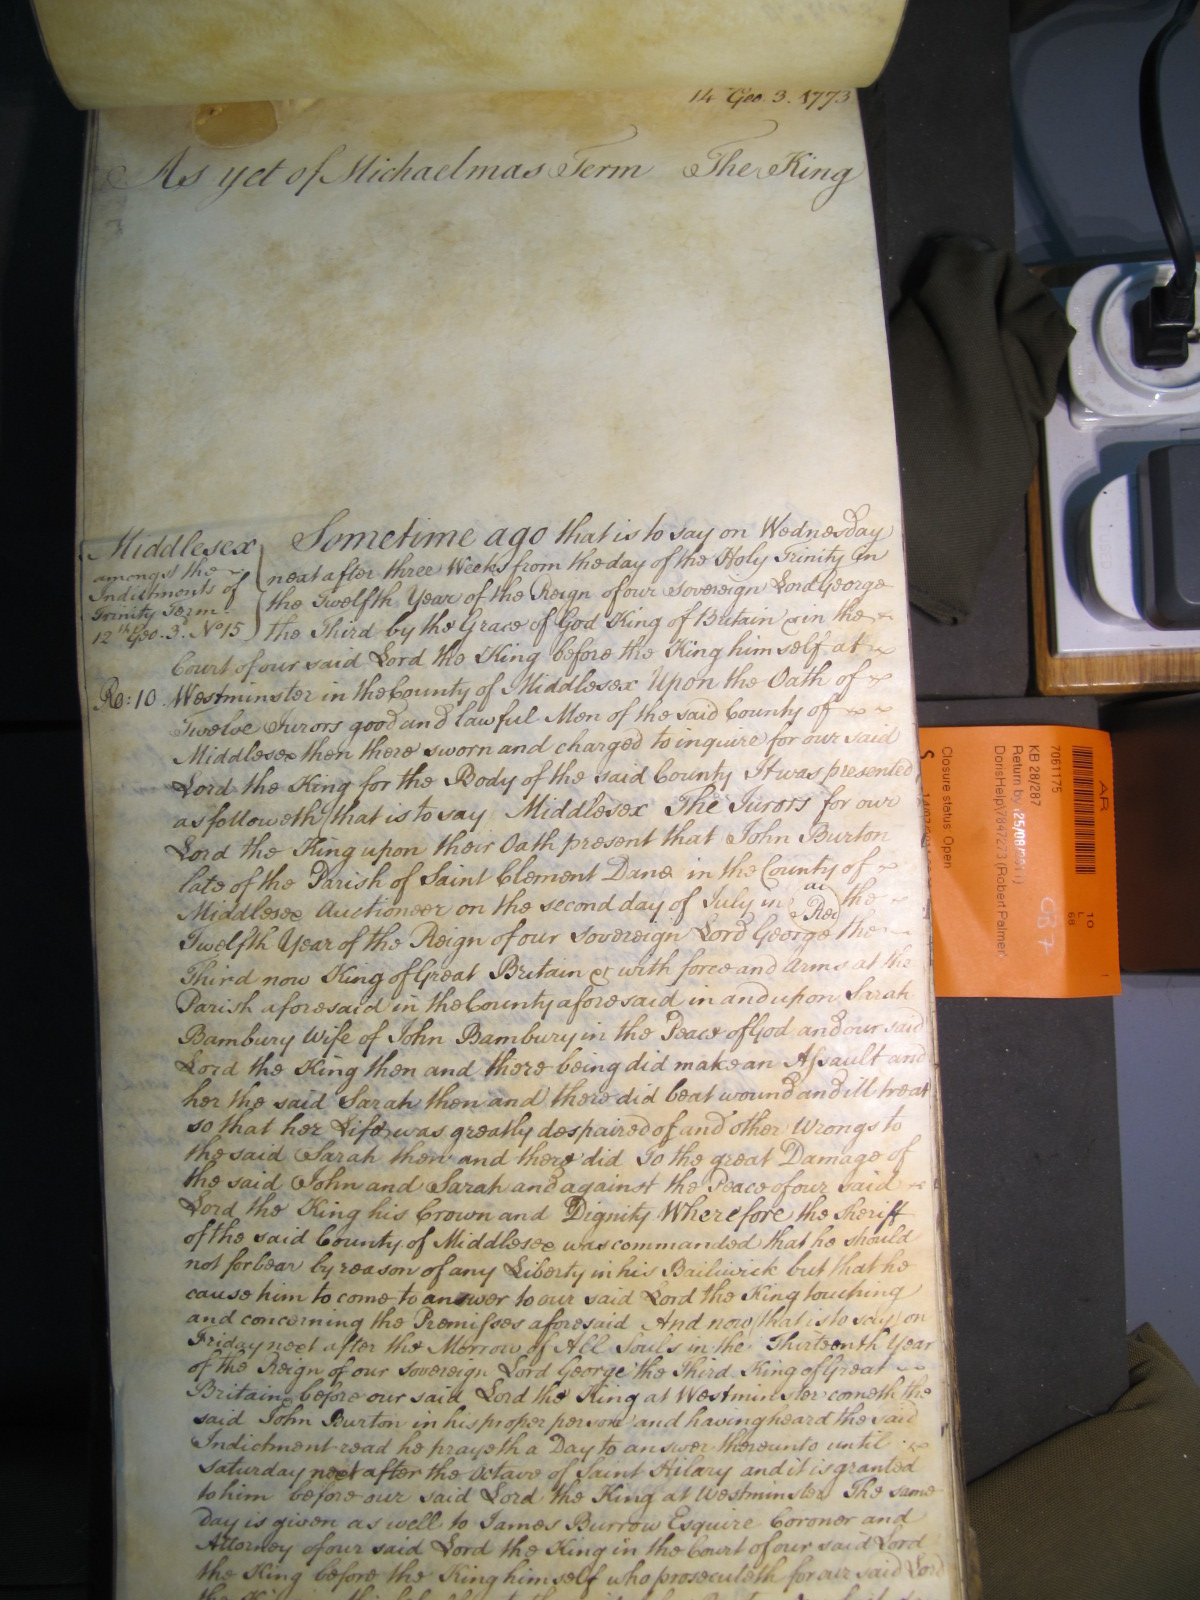 14 Geo. 3. 1773
As yet of Michaelmas Term The King
Middlesex
amongst the
Indictments of
Trinity Term
12th Geo. 3. No 15
Ro: 10
Sometime ago that is to say on Wednesday
next after three Weeks from the day of the Holy Trinity in
the Twelfth Year of the Reign of our Sovereign Lord George
the Third by the Grace of God King of Britain &c in the
Court of our said Lord the King before the King himself at
Westminster in the County of Middlesex Upon the Oath of
Twelve Jurors good and lawful Men of the said County of
Middlesex then there sworn and charged to inquire for our said
Lord the King for the Body of the said County It was presented
as followeth that is to say Middlesex The Jurors for our
Lord the King upon their Oath present that John Burton
late of the Parish of Saint Clement Dane in the County of
Middlesex Auctioneer on the second day of July in the
Twelfth Year of the Reign of our sovereign Lord George the
Third now King of Great Britain &c with force and Arms at the
Parish aforesaid in the County aforesaid in and upon Sarah
Bambury Wife of John Bambury in the Peace of God and our said
Lord the King then and there being did make an Assault and
her the said Sarah then and there did beat wound and ill treat
so that her Life was greatly despaired of and other Wrongs to
the said Sarah then and there did To the great Damage of
the said John and Sarah and against the Peace of our said
Lord the King his Crown and Dignity Wherefore the Sheriff
of the said County of Middlesex was commanded that he should
not forbear by reason of any Liberty in his Bailiwick but that he
cause him to come to answer to our said Lord the King touching
and concerning the Premisses aforesaid And now that is to say on
Friday next after the Morrow of All Souls in the Thirteenth Year
of the Reign of our sovereign Lord George the Third King of Great
Britain &c before our said Lord the King at Westminster cometh the
said John Burton in his proper person and having heard the said
Indictment read he prayeth a Day to answer thereunto until
Saturday next after the Octave of Saint Hilary and it is granted
to him before our said Lord the King at Westminster The same
Day is given as well to James Burrow Esquire Coroner and
Attorney of our said Lord the King in the Court of our said Lord
the King before the King himself who prosecuteth for our said Lord
AR
7061175
KB 28/287
Return by (25/08/2011)
DorisHelp\7847273 (Robert Palmer
Closure status Open